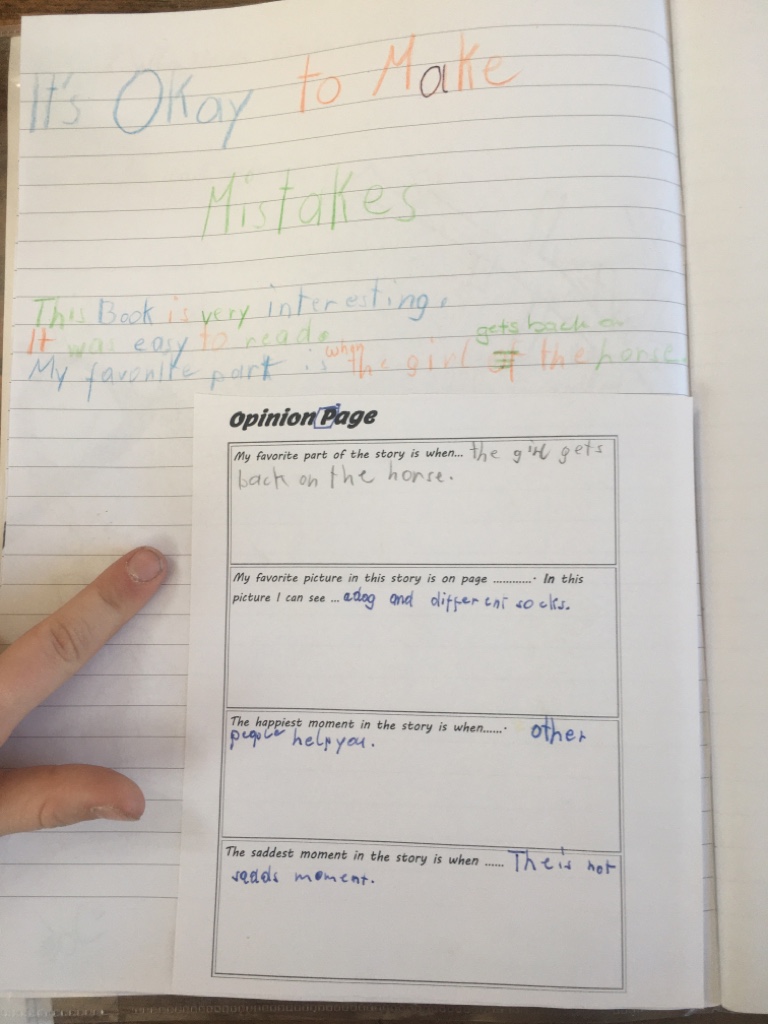 It's Okay to Make
Mistakes
This Book is very interesting.
It was easy to read.
gets back on
My favorite part is when the girl the horse.
Opinion Page
My favorite part of the story is when... the girl gets
back on the horse.
My favorite picture in this story is on page ............. In this
picture I can see ... adog and different socks.
The happiest moment in the story is when....... other
people help you.
The saddest moment in the story is when ...... The is not
sadds moment.